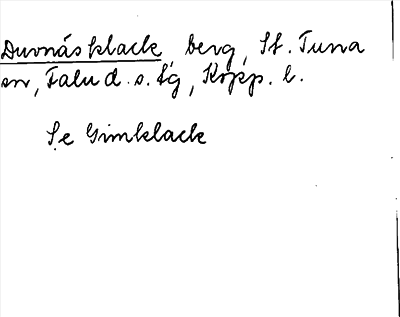 Duvnäsklack berg, St. Tuna
sn, Falu d. s. lg, Kopp. l.
Se Gimklack